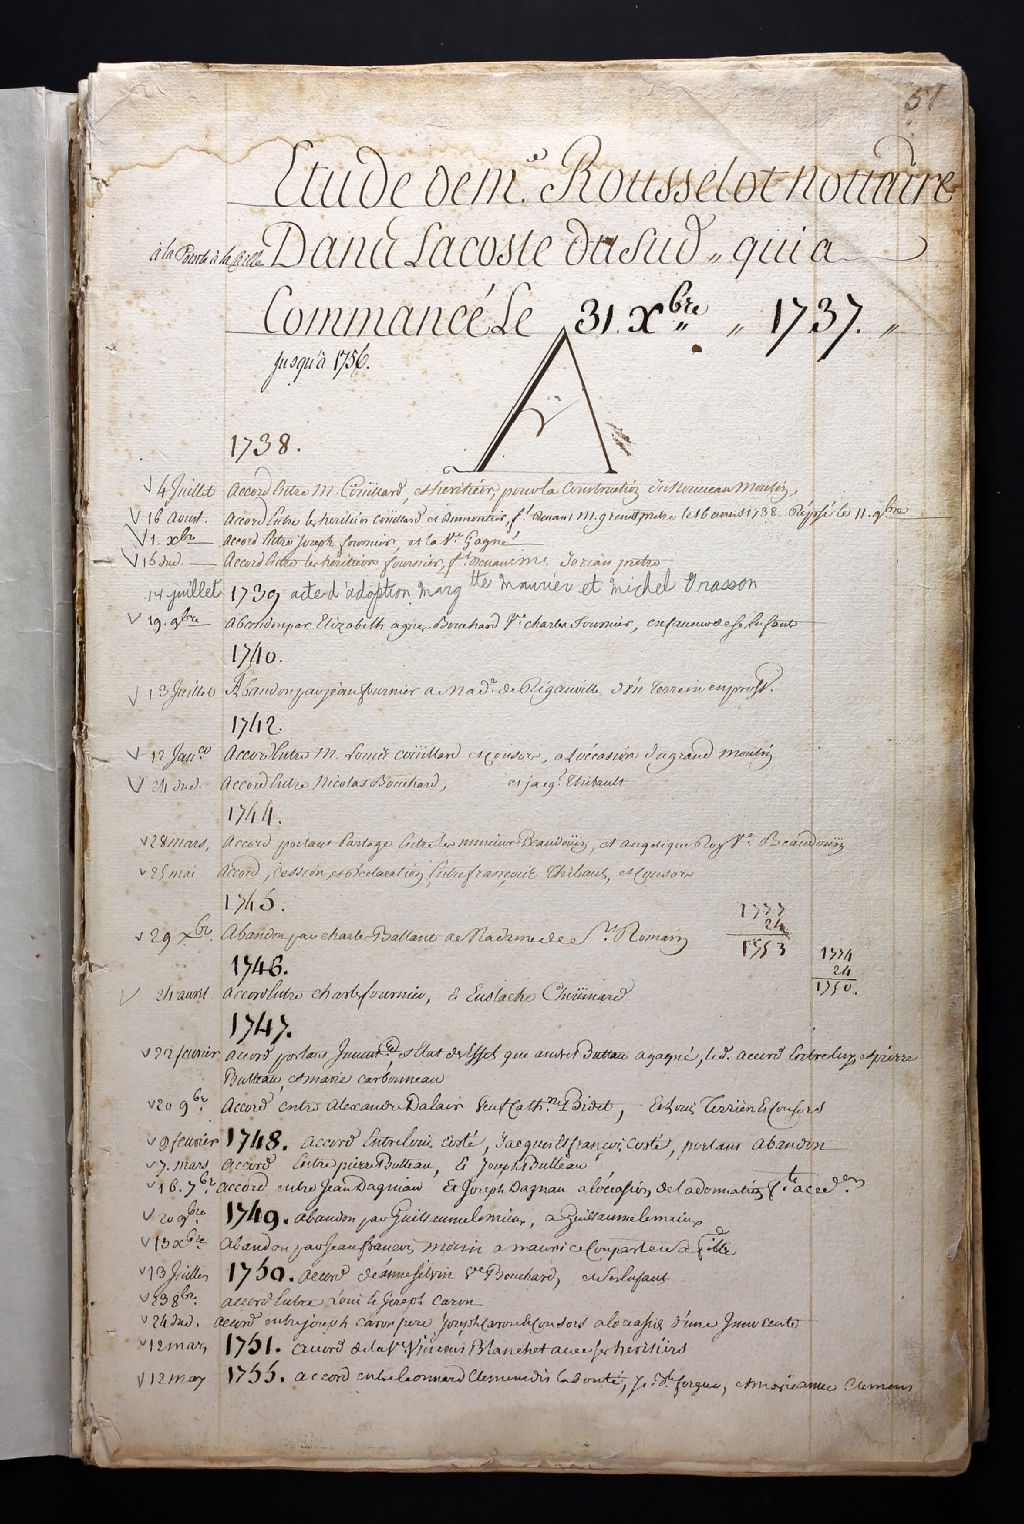 51
Etude de m.e Rousselot nottaire
à la Pointe à la Caille Dans Lacoste du Sud „ qui a
Commancé Le 31. Xbre „ 1737. „
Jusqu'à 1756.
A
1738.
4 Juillet Accord Entre M. Coüillard, et heritiers, pour la Construction du Nouveau Moulin,
16 Aoust. Accord Entre les heritiers coüillard et Dumontier, ft. devant M. le 16 1738. Déposé le 11. 9bre
1. Xbre accord Entre Joseph fournier, et la Ve. Gagné
16 dud. Accord Entre les heritiers fournier, ft. devant me. Jorian pretre
14 juillet 1739 acte d'adoption Margtte Maurier et Michel Vrasson
19. 9bre Abandon par Elizabeth agnes Bouchard Ve. charles Fournier, en faveur de ses Enfants
1740.
13 Juillet Abandon par jean fournier a Made. de Rigauville d'un Terrein en proft.
1742.
12 Janer Accord Entre M. Louis coüillard et Consors, a L'occasion du grand moulin
24 dud. Accord Entre Nicolas Bouchard, et jacq. Thibault
1744.
28 mars, Accord portant Partage Entre les mineurs Beaudoüin, et angelique Roy Ve. Beaudoüin
25 mai Accord, Cession, et Déclaration, Entre françois Thibaut, et Consors
1745.
29 Xbre. Abandon par charle Ballant a Madame de St. Romain
1777
24
1753
1746.
1774
24
1750.
24 avril Accord Entre charle fournier, & Eustache Choüinard
1747.
22 fevrier accord portant Invent.re et Etat des Effets que Butteau a gagné, led. accord Entre luy, et pierre
Butteau, et marie carbonneau
20 9bre Accord Entre Alexandre Dalair veuf Cathne. Bidet, Et Louis Terrien et Consors
9 fevrier 1748. accord Entre Louis Costé, Jacques et françois Costé, portant abandon
7. mars accord Entre pierre Butteau, & Joseph Butteau
16. 7bre accord entre Jean Dagniau Et Joseph Dagnau a l'occasion de la donnation
20 9bre 1749. abandon par Guillaume lemieux, a Guillaume lemieux
13 Xbre Abandon par Jean francois Morin a maurice
13 Juillet 1750. accord de anne Silvin Ve Bouchard, et ses Enfant
23 8bre. accord Entre Louis & Joseph Caron
24 dud. accord entre joseph caron pere Joseph Caron & Consors a l'occasion d'une
12 mars 1751. accord de la Ve. Vincens Blanchet avec ses heritiers
12 may 1755. accord entre Leonnard Clemen dit labonté, et marianne Clemens